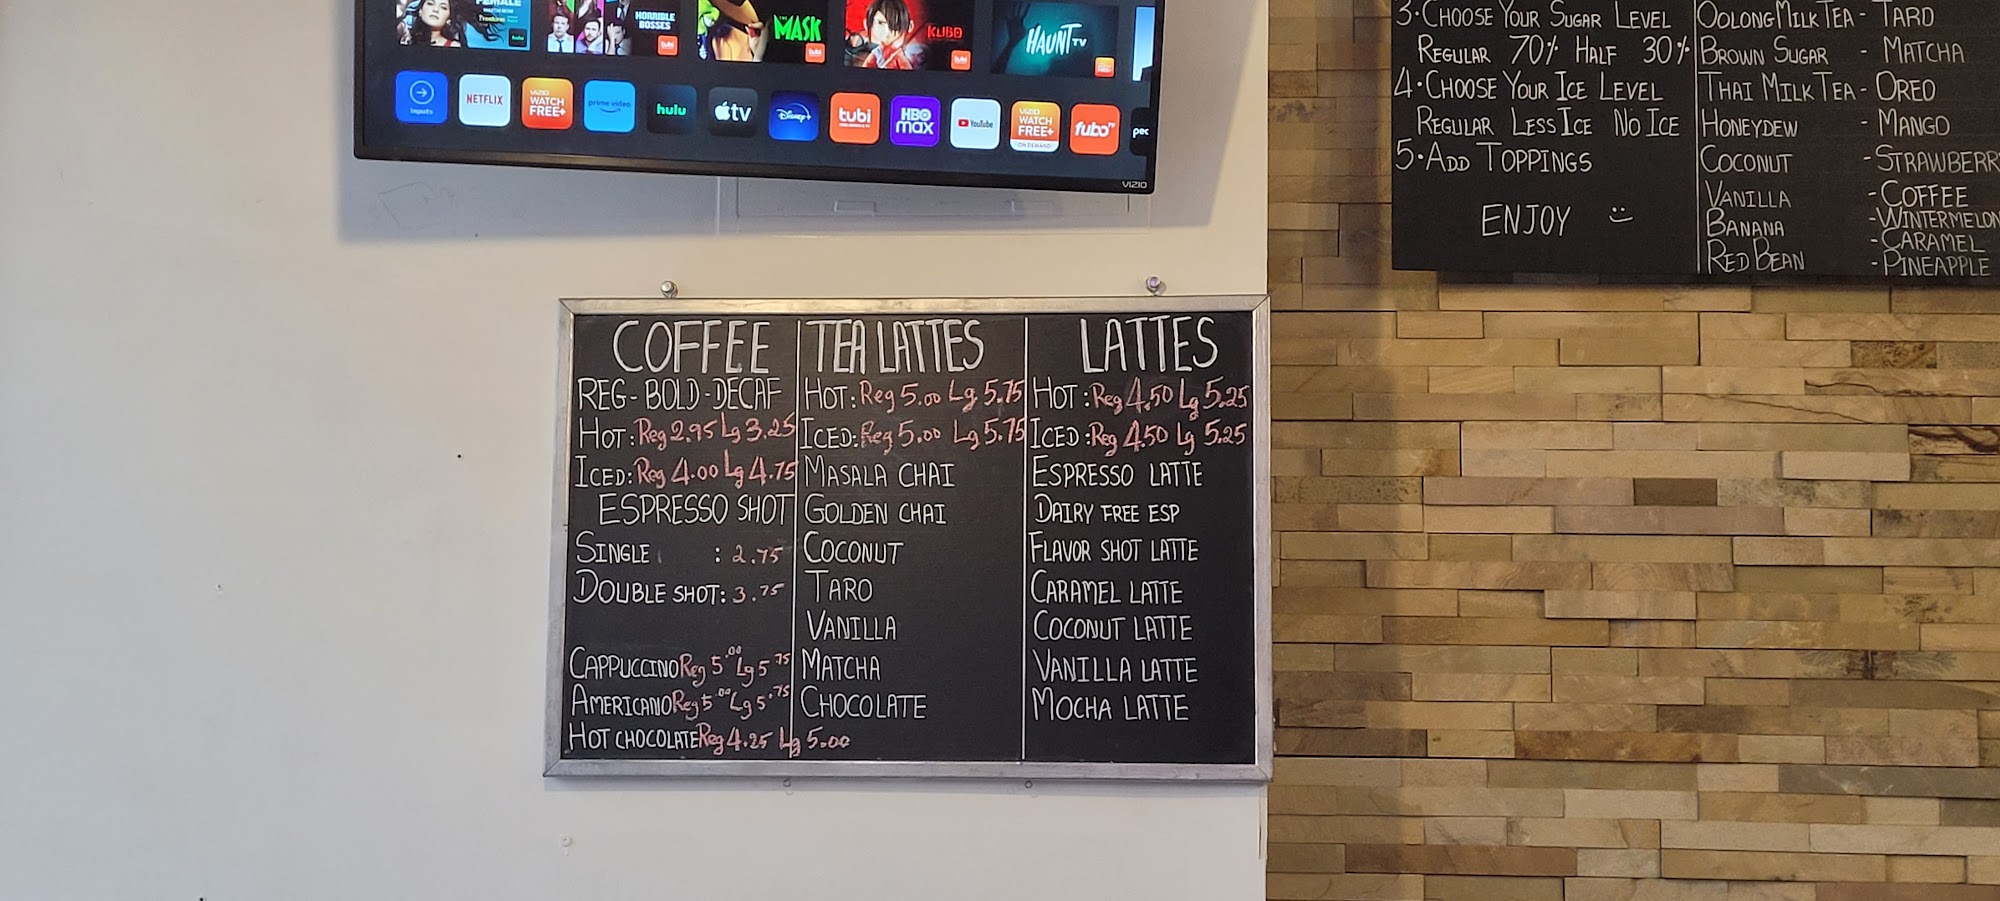 FEMALE
HORRIBLE
BOSSES
tubi
hulu
THE
MASK
tubi
KUBO
tubi
HAUNT TV
inputs
NETFLIX
VIZIO
WATCH
FREE+
prime video
hulu
tv
Disney+
tubi
HBO
max
YouTube
VIZIO
WATCH
FREE+
ON DEMAND
fubo TV
pec
VIZIO
3·CHOOSE YOUR SUGAR LEVEL
REGULAR 70% HALF 30%
4·CHOOSE YOUR ICE LEVEL
REGULAR LESS ICE NO ICE
5·ADD TOPPINGS
ENJOY
OOLONG MILK TEA - TARO
BROWN SUGAR - MATCHA
THAI MILK TEA - OREO
HONEYDEW - MANGO
COCONUT - STRAWBERR
VANILLA - COFFEE
BANANA - WINTERMELON
- CARAMEL
RED BEAN - PINEAPPLE
COFFEE
REG - BOLD - DECAF
HOT: Reg 2.95 Lg 3.25
ICED: Reg 4.00 Lg 4.75
ESPRESSO SHOT
SINGLE : 2.75
DOUBLE SHOT: 3.75
CAPPUCCINO Reg 5.00 Lg 5.75
AMERICANO Reg 5.00 Lg 5.75
HOT CHOCOLATE Reg 4.25 Lg 5.00
TEA LATTES
HOT: Reg 5.00 Lg 5.75
ICED: Reg 5.00 Lg 5.75
MASALA CHAI
GOLDEN CHAI
COCONUT
TARO
VANILLA
MATCHA
CHOCOLATE
LATTES
HOT: Reg 4.50 Lg 5.25
ICED: Reg 4.50 Lg 5.25
ESPRESSO LATTE
DAIRY FREE ESP
FLAVOR SHOT LATTE
CARAMEL LATTE
COCONUT LATTE
VANILLA LATTE
MOCHA LATTE